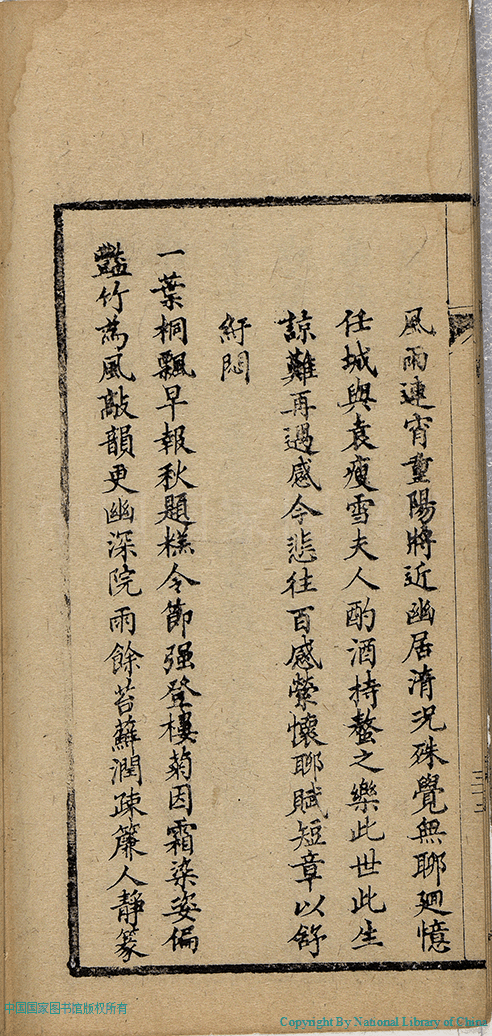 風雨連宵重陽將近幽居清况殊覺無聊廻憶
任城與袁瘦雪夫人酌酒持螯之樂此世此生
諒難再遇感今悲往百感縈懷聊賦短章以舒
紆悶
一葉桐飄早報秋題糕令節强登樓菊因霜染姿偏
豔竹為風敲韻更幽深院雨餘苔蘚潤疎簾人靜篆
三三
中国国家图书馆版权所有
Copyright By National Library of China